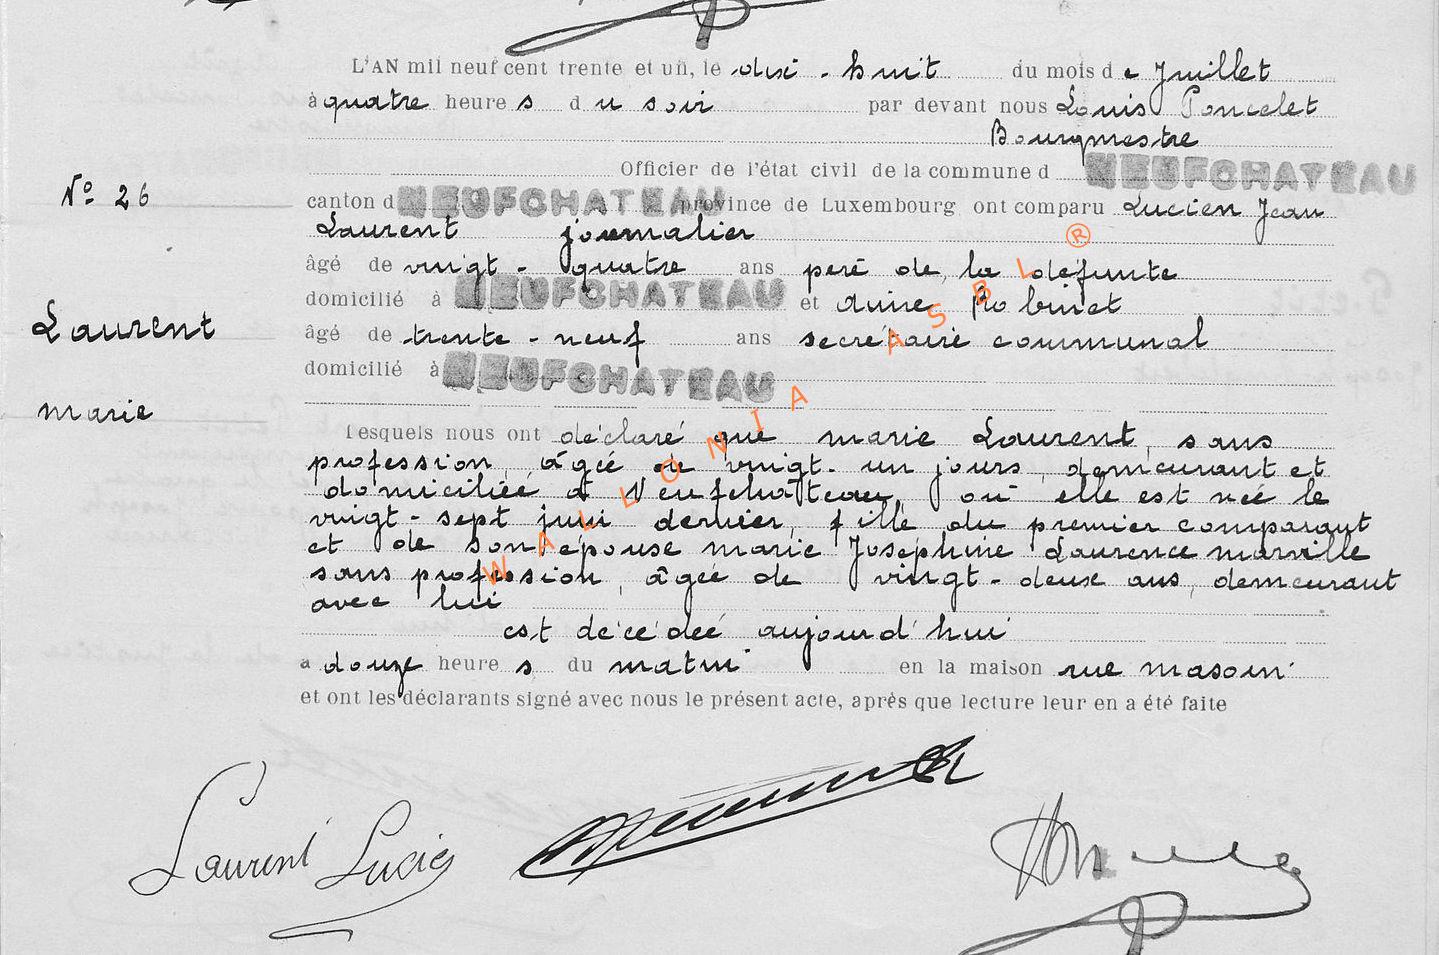 L'AN mil neuf cent trente et un, le dix-huit du mois de Juillet
à quatre heures du soir par devant nous Louis Poncelet
Bourgmestre
Officier de l'état civil de la commune d NEUFCHATEAU
N° 26
canton d NEUFCHATEAU province de Luxembourg ont comparu Lucien Jean
Laurent journalier
âgé de vingt-quatre ans père de la défunte
domicilié à NEUFCHATEAU et Robinet
Laurent
âgé de trente-neuf ans secrétaire communal
domicilié à NEUFCHATEAU
marie
lesquels nous ont déclaré que marie Laurent, sans
profession, âgée de vingt-un jours, demeurant et
domiciliée à Neufchâteau, où elle est née le
vingt-sept juin dernier, fille du premier comparant
et de son épouse marie Joséphine Laurence marville
sans profession, âgée de vingt-deux ans, demeurant
avec lui
est décédée aujourd'hui
a douze heures du matin en la maison rue masoin
et ont les déclarants signé avec nous le présent acte, après que lecture leur en a été faite
WALLONIA ASBL ®
Laurent Lucien